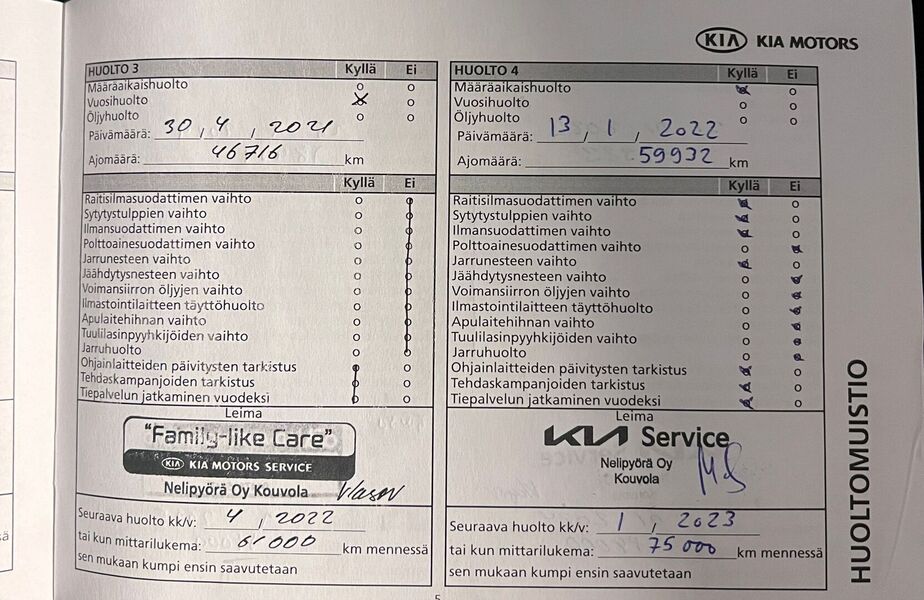 KIA KIA MOTORS
HUOLTO 3 Kyllä Ei
Määräaikaishuolto
Vuosihuolto
Öljyhuolto
Päivämäärä: 30, 4, 2021
Ajomäärä: 46716 km
Kyllä Ei
Raitisilmasuodattimen vaihto
Sytytystulppien vaihto
Ilmansuodattimen vaihto
Polttoainesuodattimen vaihto
Jarrunesteen vaihto
Jäähdytysnesteen vaihto
Voimansiirron öljyjen vaihto
Ilmastointilaitteen täyttöhuolto
Apulaitehihnan vaihto
Tuulilasinpyyhkijöiden vaihto
Jarruhuolto
Ohjainlaitteiden päivitysten tarkistus
Tehdaskampanjoiden tarkistus
Tiepalvelun jatkaminen vuodeksi
Leima
"Family-like Care"
KIA KIA MOTORS SERVICE
Nelipyörä Oy Kouvola
Seuraava huolto kk/v: 4 / 2022
tai kun mittarilukema: 61000 km mennessä
sen mukaan kumpi ensin saavutetaan
HUOLTO 4 Kyllä Ei
Määräaikaishuolto
Vuosihuolto
Öljyhuolto
Päivämäärä: 13 / 1 / 2022
Ajomäärä: 59932 km
Kyllä Ei
Raitisilmasuodattimen vaihto
Sytytystulppien vaihto
Ilmansuodattimen vaihto
Polttoainesuodattimen vaihto
Jarrunesteen vaihto
Jäähdytysnesteen vaihto
Voimansiirron öljyjen vaihto
Ilmastointilaitteen täyttöhuolto
Apulaitehihnan vaihto
Tuulilasinpyyhkijöiden vaihto
Jarruhuolto
Ohjainlaitteiden päivitysten tarkistus
Tehdaskampanjoiden tarkistus
Tiepalvelun jatkaminen vuodeksi
Leima
KIA Service
Nelipyörä Oy
Kouvola
Seuraava huolto kk/v: 1 / 2023
tai kun mittarilukema: 75000 km mennessä
sen mukaan kumpi ensin saavutetaan
HUOLTOMUISTIO